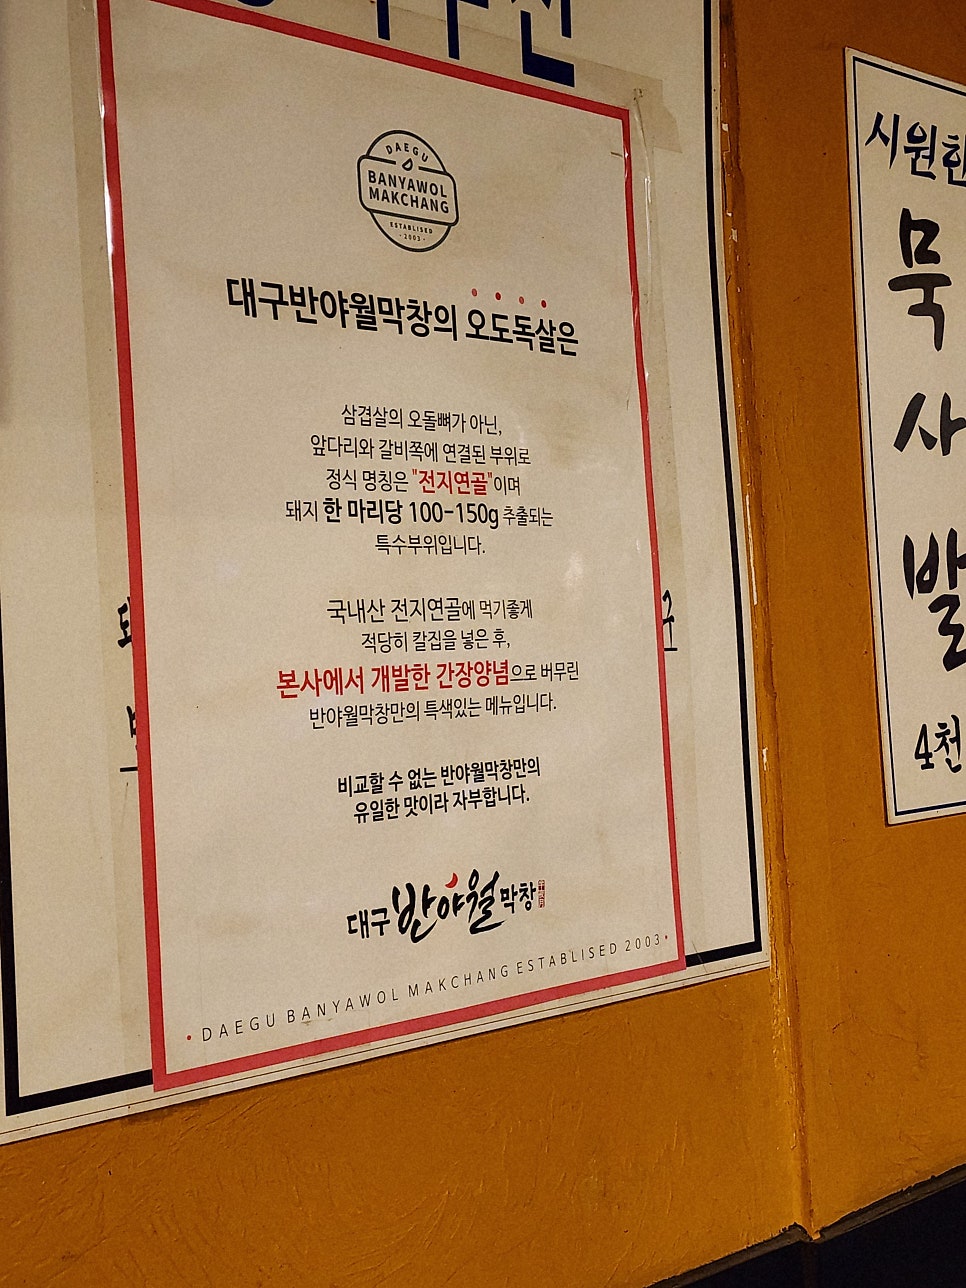 DAEGU
BANYAWOL
MAKCHANG
ESTABLISED
·2003·
대구반야월막창의 오도독살은
삼겹살의 오돌뼈가 아닌,
앞다리와 갈비쪽에 연결된 부위로
정식 명칭은 "전지연골"이며
돼지 한 마리당 100-150g 추출되는
특수부위입니다.
국내산 전지연골에 먹기좋게
적당히 칼집을 넣은 후,
본사에서 개발한 간장양념으로 버무린
반야월막창만의 특색있는 메뉴입니다.
비교할 수 없는 반야월막창만의
유일한 맛이라 자부합니다.
대구반야월막창
• DAEGU BANYAWOL MAKCHANG ESTABLISED 2003 •
시원한
묵
사
발
4천